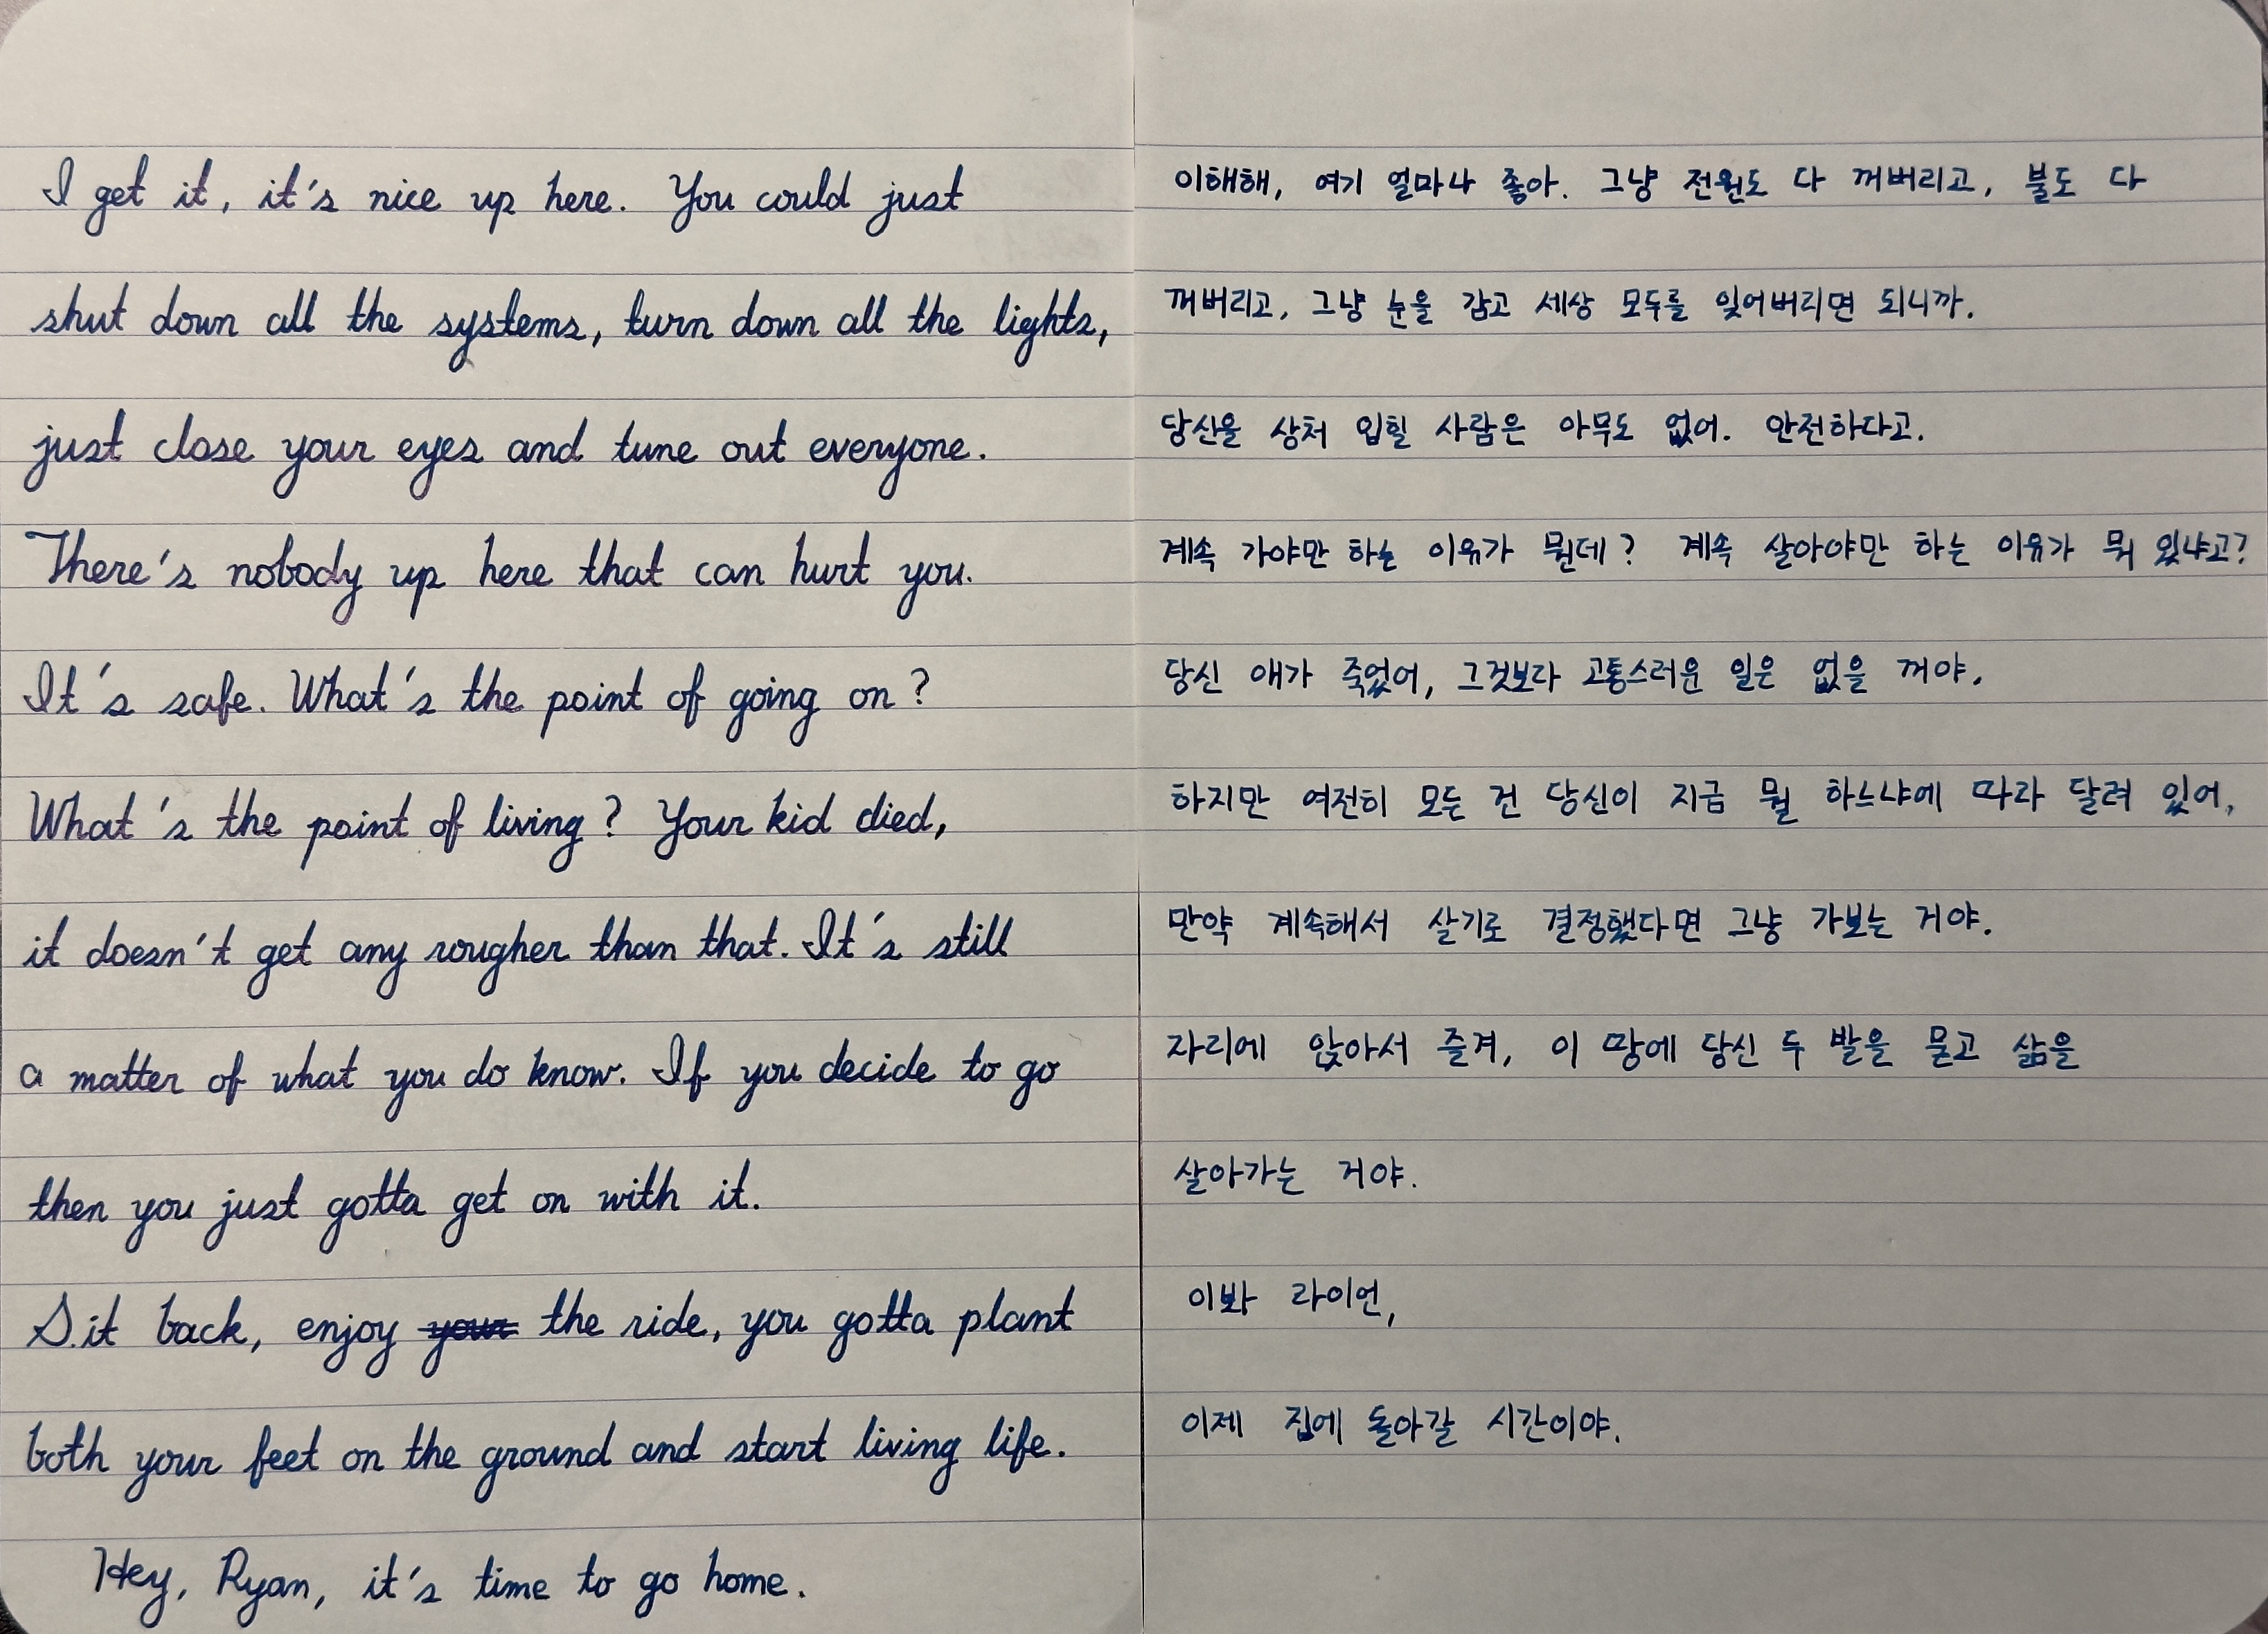 I get it, it's nice up here. You could just
shut down all the systems, turn down all the lights,
just close your eyes and tune out everyone.
There's nobody up here that can hurt you.
It's safe. What's the point of going on?
What's the point of living? Your kid died,
it doesn't get any rougher than that. It's still
a matter of what you do know. If you decide to go
then you just gotta get on with it.
Sit back, enjoy your the ride, you gotta plant
both your feet on the ground and start living life.
Hey, Ryan, it's time to go home.
이해해, 여기 얼마나 좋아. 그냥 전원도 다 꺼버리고, 불도 다
꺼버리고, 그냥 눈을 감고 세상 모두를 잊어버리면 되니까.
당신을 상처 입힐 사람은 아무도 없어. 안전하다고.
계속 가야만 하는 이유가 뭔데? 계속 살아야만 하는 이유가 뭐 있냐고?
당신 애가 죽었어, 그것보다 고통스러운 일은 없을 꺼야.
하지만 여전히 모든 건 당신이 지금 뭘 하느냐에 따라 달려 있어,
만약 계속해서 살기로 결정했다면 그냥 가보는 거야.
자리에 앉아서 즐겨, 이 땅에 당신 두 발을 묻고 삶을
살아가는 거야.
이봐 라이언,
이제 집에 돌아갈 시간이야.